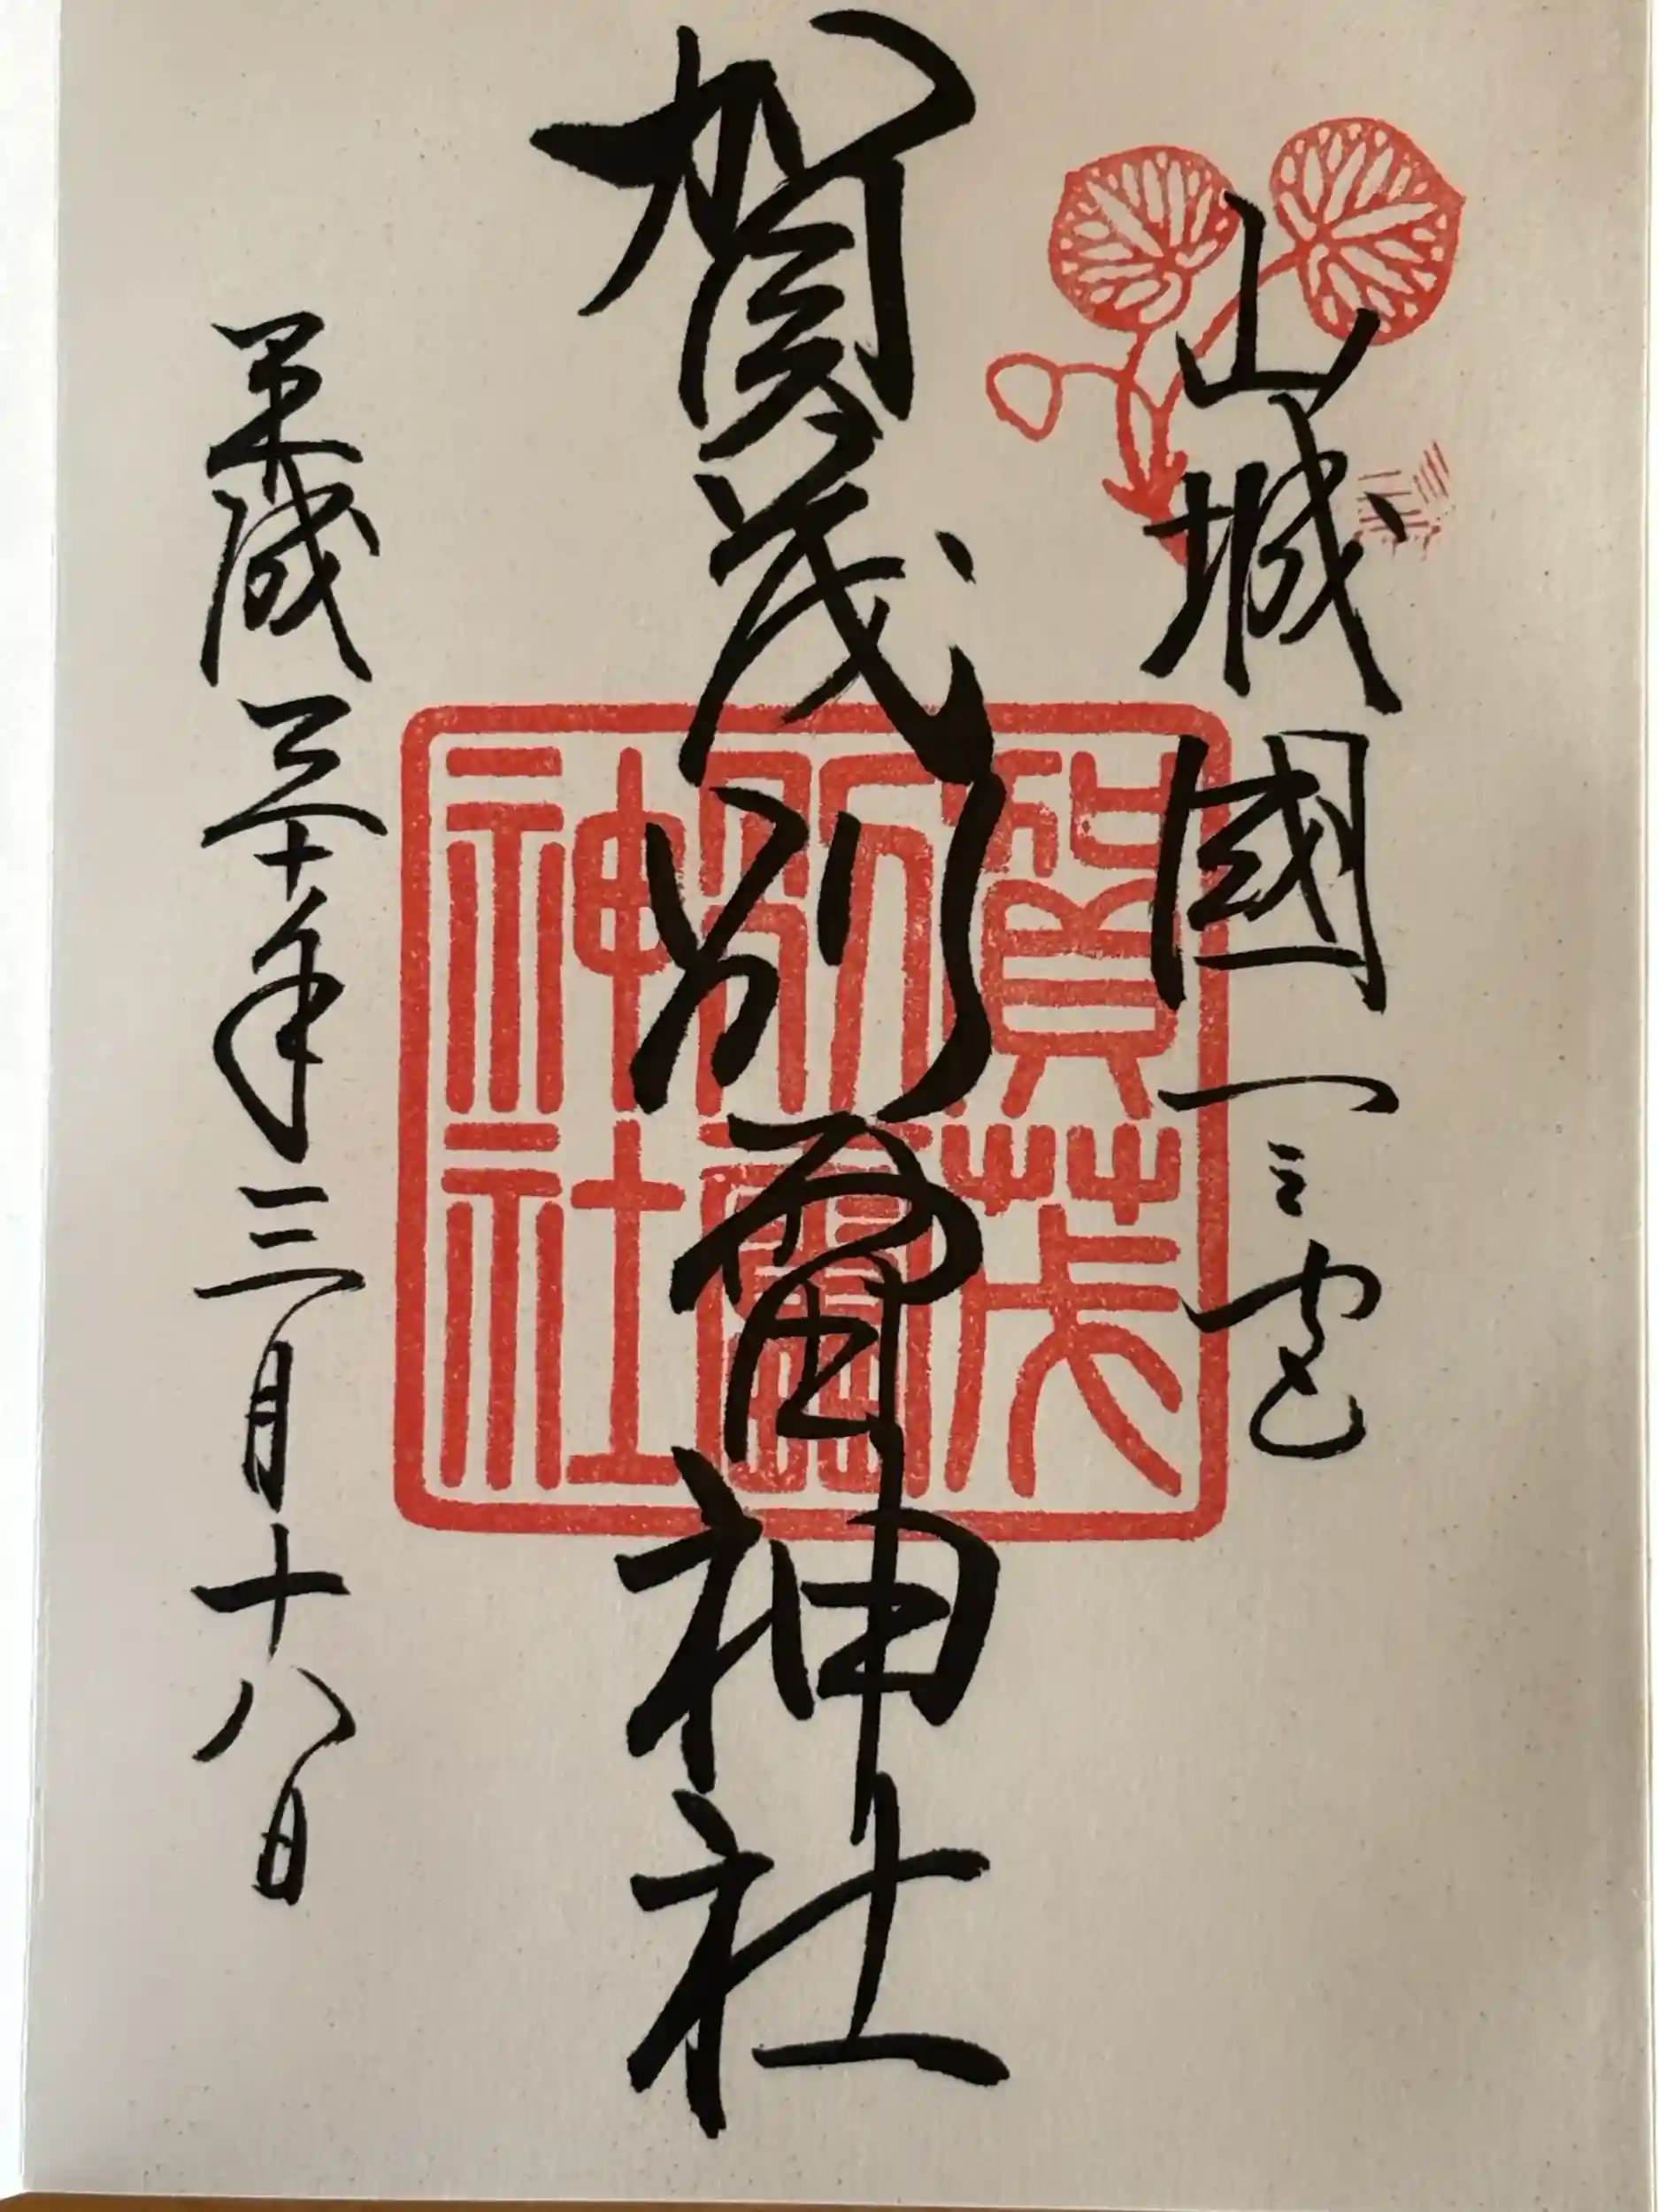 山城國一之宮
賀茂別雷神社
賀茂
別雷
神社
平成三十年三月十八日